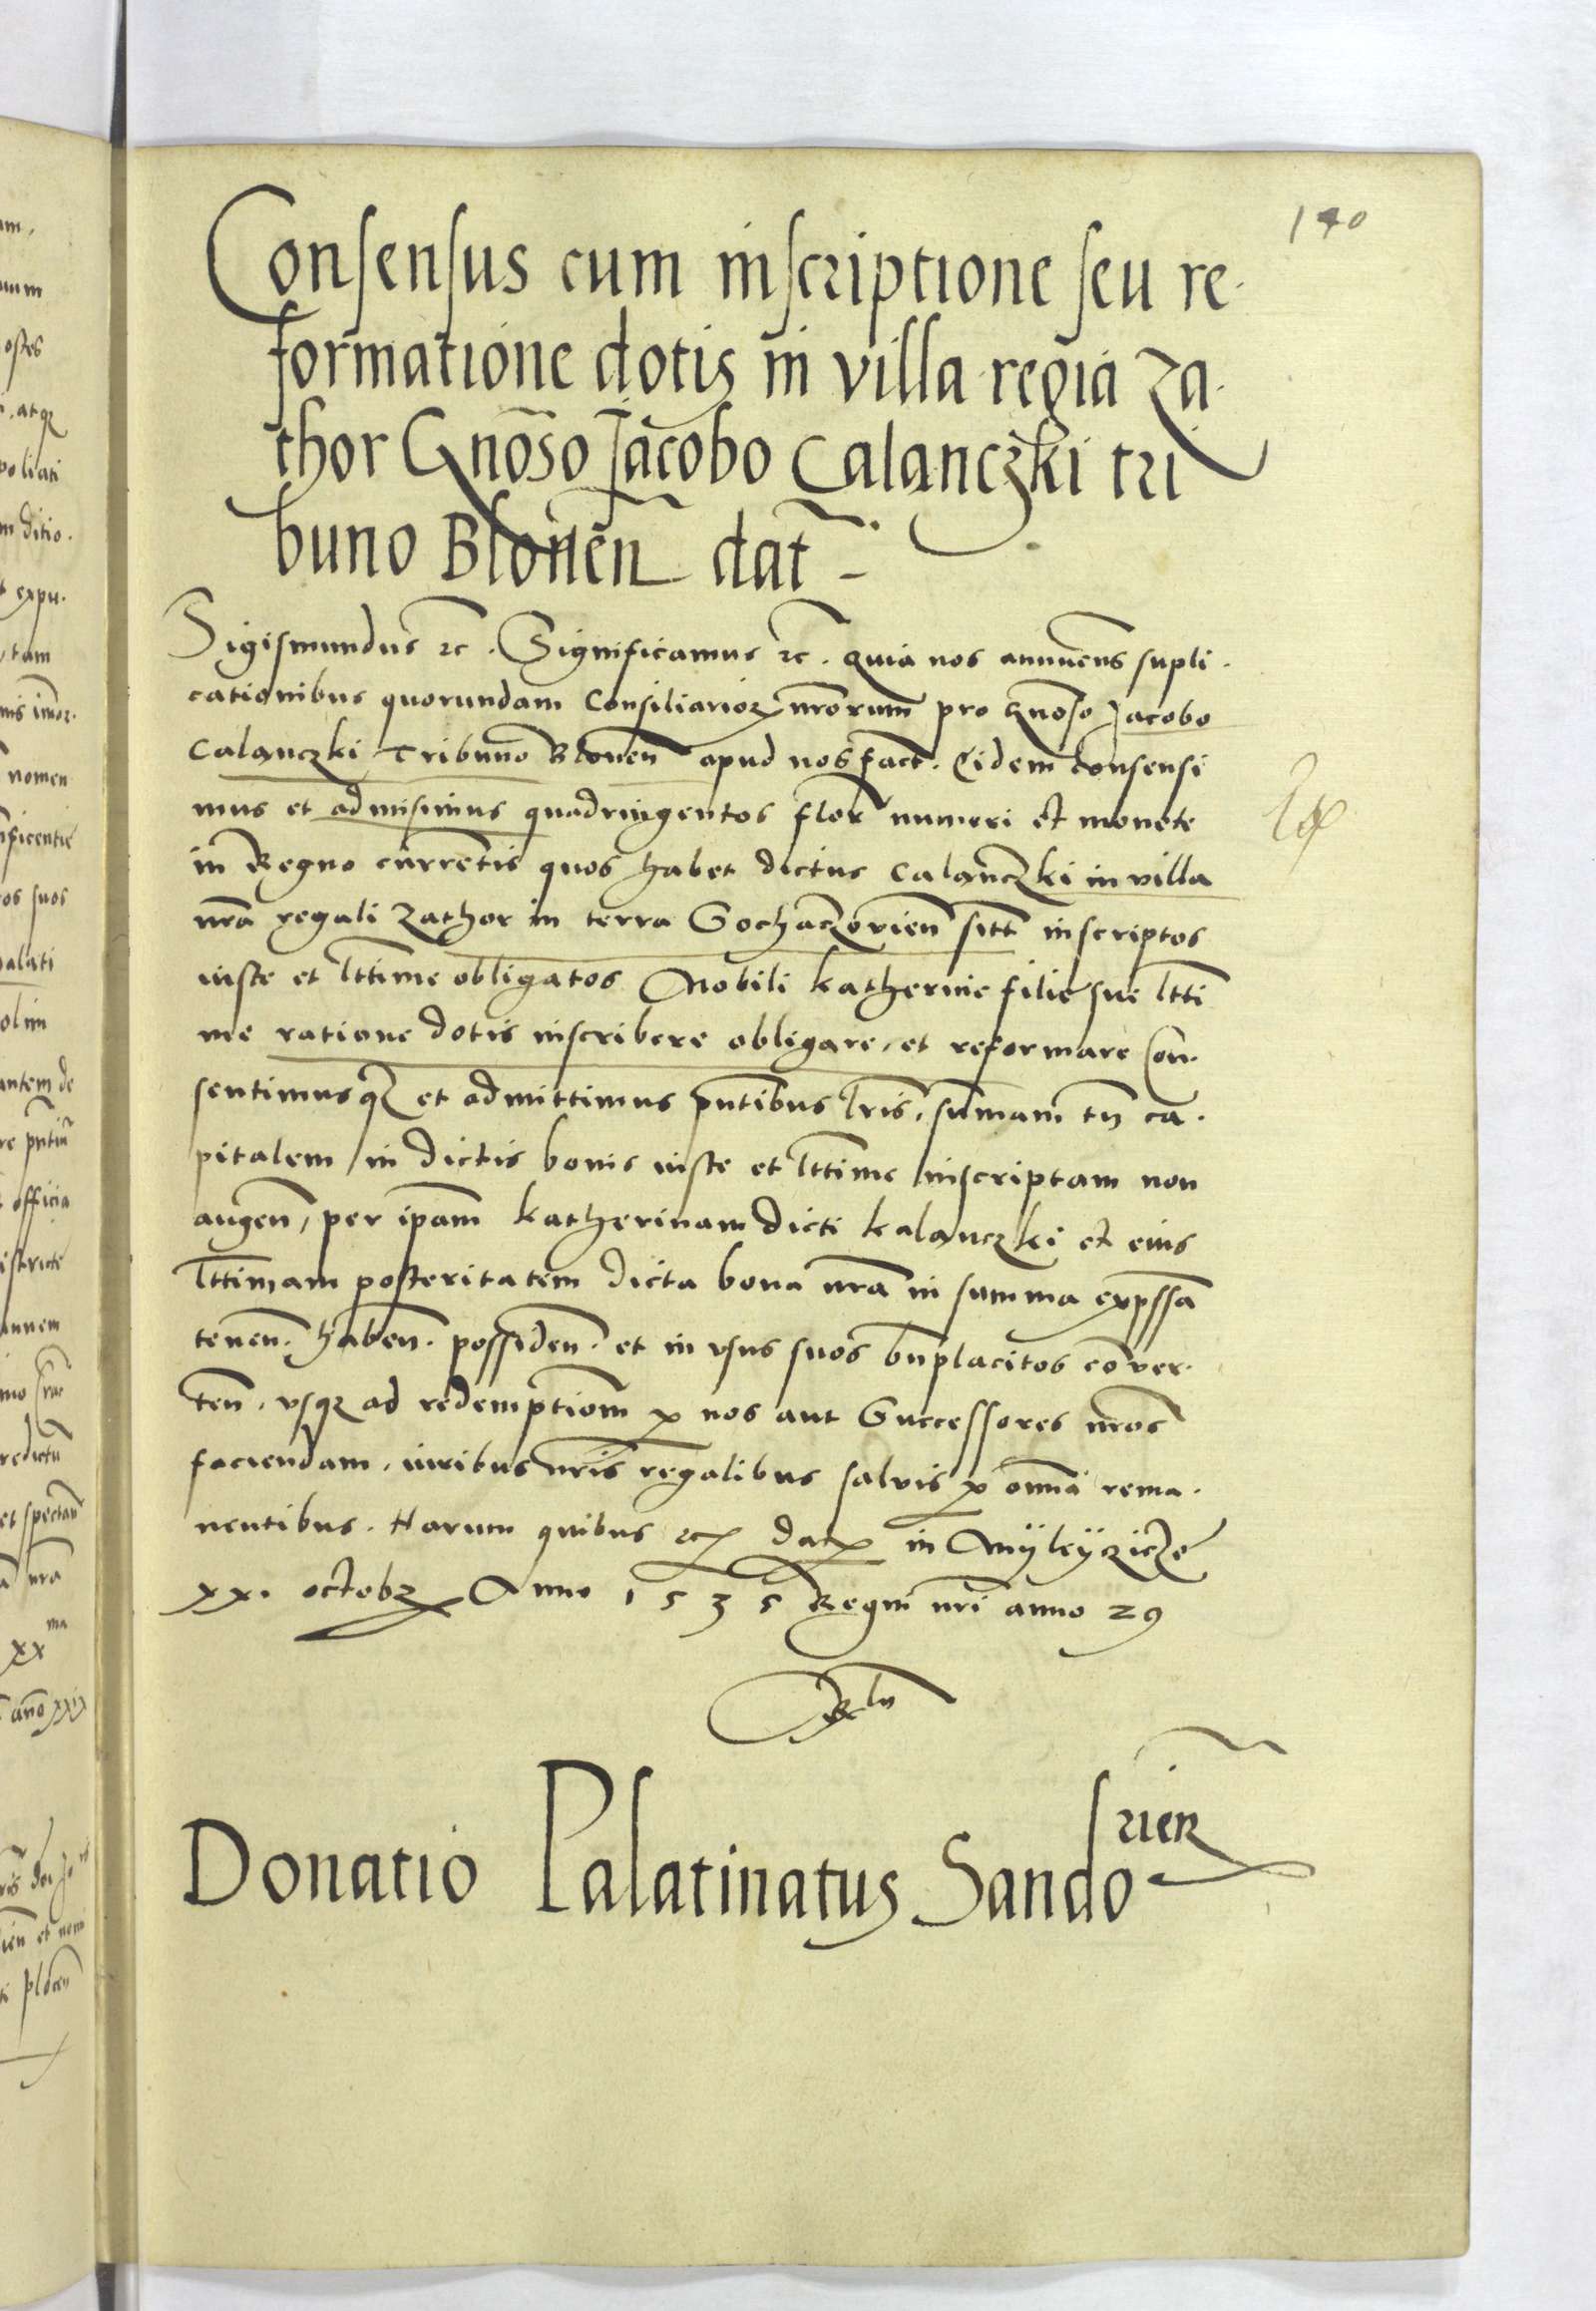 140
Consensus cum inscriptione seu re-
formatione dotis in villa regia Za-
thor Gnōso Jacobo Calanczki tri
buno Blonēn dat̄
Sigismundus ꝛc. Significamus ꝛc. Quia nos annuens supli-
cationibus quorundam Consiliarioꝝ nr̄orum pro Gnoso Jacobo
Calanczki Tribuno Blonen̄ apud nos fact. Eidem consensi
mus et admisimus quadringentos flor̄ numeri et monete
in Regno currentis quos habet dictus Calanczki in villa
nr̄a regali Zathor in terra Sochaczovien̄ sitt̄ inscriptos
iuste et lt̄time obligatos Nobili Katherine filie sue lt̄ti
me ratione dotis inscribere obligare, et reformare Con-
sentimusqꝫ et admittimus pn̄tibus lr̄is, sum̄am tn̄ ca-
pitalem in dictis bonis iuste et lt̄time inscriptam non
augen̄, per ip̄am Katherinam dicti Kalanczki et eius
lt̄timam posteritatem dicta bona nr̄a in summa exp̄ssa
tenen̄. haben̄. possiden̄. et in vsus suos bn̄placitos cōver-
ten̄. vsqꝫ ad redemptiom̄ ꝑ nos aut Successores nr̄os
faciendam, iuribus nr̄is regalibus salvis ꝑ om̄ia rema-
nentibus. Harum quibus ꝛc dat in Myleyzicze
xx. octobꝫ Anno 1535 Regni nr̄i anno 29
Rln̄
Donatio Palatinatus Sando
srien̄